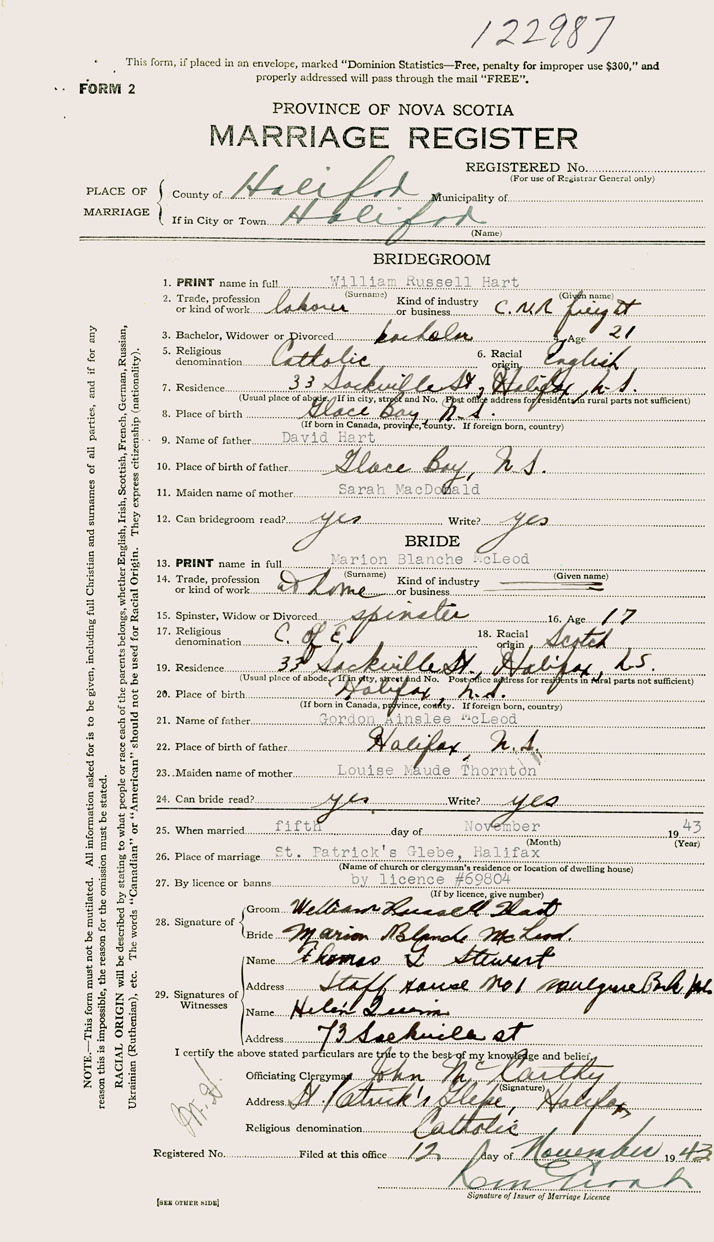 122987
This form, if placed in an envelope, marked "Dominion Statistics—Free, penalty for improper use $300," and
properly addressed will pass through the mail "FREE".
FORM 2
PROVINCE OF NOVA SCOTIA
MARRIAGE REGISTER
REGISTERED No.
(For use of Registrar General only)
PLACE OF MARRIAGE
County of Halifax Municipality of
If in City or Town Halifax
(Name)
BRIDEGROOM
1. PRINT name in full William Russell Hart
(Surname) (Given name)
2. Trade, profession or kind of work laborer Kind of industry or business C.N.R freight
3. Bachelor, Widower or Divorced bachelor 4. Age 21
5. Religious denomination Catholic 6. Racial origin English
7. Residence 33 Sackville St., Halifax, N.S.
(Usual place of abode. If in city, street and No. Post office address for residents in rural parts not sufficient)
8. Place of birth Glace Bay, N.S.
(If born in Canada, province, county. If foreign born, country)
9. Name of father David Hart
10. Place of birth of father Glace Bay, N.S.
11. Maiden name of mother Sarah MacDonald
12. Can bridegroom read? yes Write? yes
BRIDE
13. PRINT name in full Marion Blanche McLeod
(Surname) (Given name)
14. Trade, profession or kind of work at home Kind of industry or business
15. Spinster, Widow or Divorced spinster 16. Age 17
17. Religious denomination C. of E. 18. Racial origin Scotch
19. Residence 33 Sackville St., Halifax, N.S.
(Usual place of abode. If in city, street and No. Post office address for residents in rural parts not sufficient)
20. Place of birth Halifax, N.S.
(If born in Canada, province, county. If foreign born, country)
21. Name of father Gordon Ainslee McLeod
22. Place of birth of father Halifax, N.S.
23. Maiden name of mother Louise Maude Thornton
24. Can bride read? yes Write? yes
25. When married fifth day of November 1943
(Month) (Year)
26. Place of marriage St. Patrick's Glebe, Halifax
(Name of church or clergyman's residence or location of dwelling house)
27. By licence or banns by licence #69804
(If by licence, give number)
28. Signature of
Groom William Russell Hart
Bride Marion Blanche McLeod.
29. Signatures of Witnesses
Name Thomas Stewart
Address Staff House No 1
Name Helen
Address 73 Sackville st
I certify the above stated particulars are true to the best of my knowledge and belief.
Officiating Clergyman John McCarthy
(Signature)
Address St. Patrick's Glebe, Halifax
Religious denomination Catholic
Registered No. Filed at this office 12 day of November 1943
Signature of Issuer of Marriage Licence
[SEE OTHER SIDE]
NOTE.—This form must not be mutilated. All information asked for is to be given, including full Christian and surnames of all parties, and if for any
reason this is impossible, the reason for the omission must be stated.
RACIAL ORIGIN will be described by stating to what people or race each of the parents belongs, whether English, Irish, Scottish, French, German, Russian,
Ukrainian (Ruthenian), etc. The words "Canadian" or "American" should not be used for Racial Origin. They express citizenship (nationality).